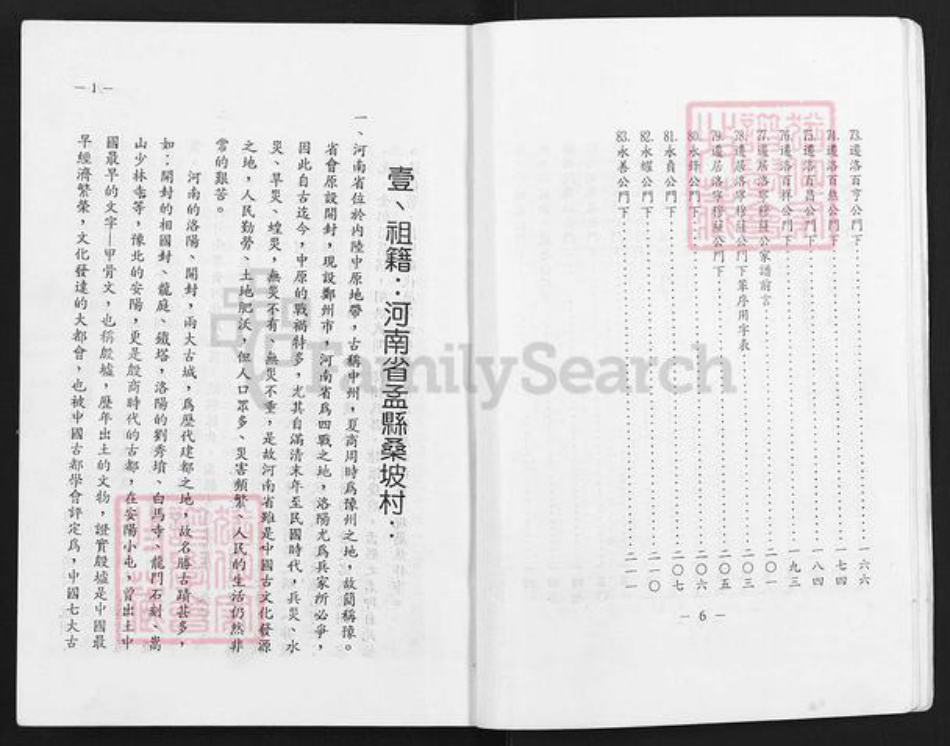 73. 遷洛百亨公門下……一六六
74. 遷洛百然公門下……一七四
75. 遷洛百昌公門下……一八四
76. 遷洛百祥公門下……一九三
77. 遷居洛寧穆公家譜前言……二〇一
78. 遷居洛寧穆公門下輩序用字表……二〇三
79. 遷居洛寧穆公門下……二〇五
80. 永公門下……二〇六
81. 永貞公門下……二〇七
82. 永耀公門下……二一〇
83. 永善公門下……二一一
— 6 —
壹、祖籍：河南省孟縣桑坡村：
一、河南省位於內陸中原地帶，古稱中州，夏商周時為豫州之地，故簡稱豫。
省會原設開封，現設鄭州市，河南省為四戰之地，洛陽尤為兵家所必爭，
因此自古迄今，中原的戰禍特多，尤其自滿清末年至民國時代，兵災、水
災、旱災、蝗災，無災不有、無災不重，是故河南省雖是中國古文化發源
之地，人民勤勞、土地肥沃，但人口眾多、災害頻繁、人民的生活仍然非
常的艱苦。
河南的洛陽、開封，兩大古城，為歷代建都之地，故名勝古蹟甚多，
如：開封的相國封、龍庭、鐵塔，洛陽的劉秀墳、白馬寺、龍門石刻、嵩
山少林寺等，豫北的安陽，更是殷商時代的古都，在安陽小屯，曾出土中
國最早的文字—甲骨文，也稱殷墟，歷年出土的文物，證實殷墟是中國最
早經濟繁榮，文化發達的大都會，也被中國古都學會評定為，中國七大古
— 1 —
FamilySearch